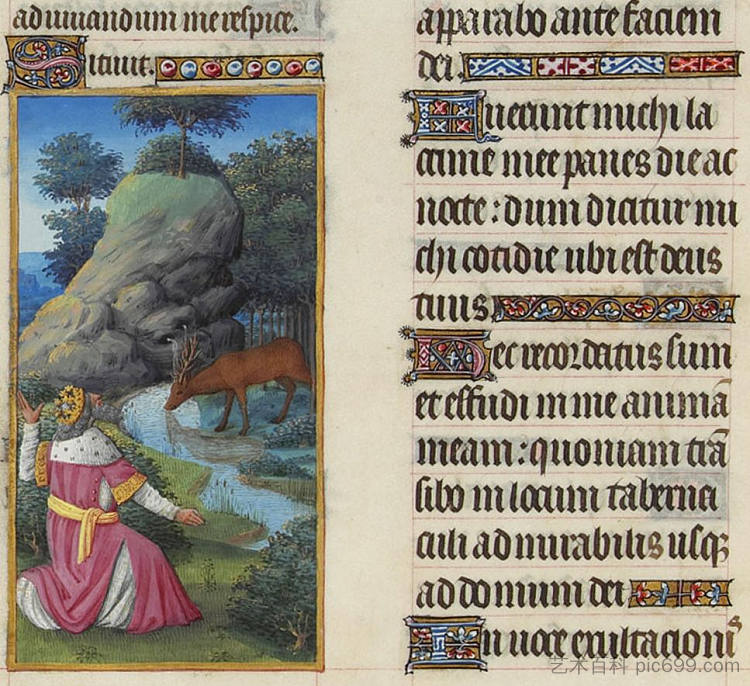 adiuuandum me respice.
Sitiuit.
apparabo ante faciem
dei.
Fuerunt michi la
crime mee panes die ac
nocte : dum dicitur mi
chi cotidie ubi est deus
tuus.
Hec recordatus sum
et effudi in me animā
meam : quoniam trā
sibo in locum taberna
culi admirabilis usq
ad domum dei
In uoce exultacionis
艺术百科 pic699.com